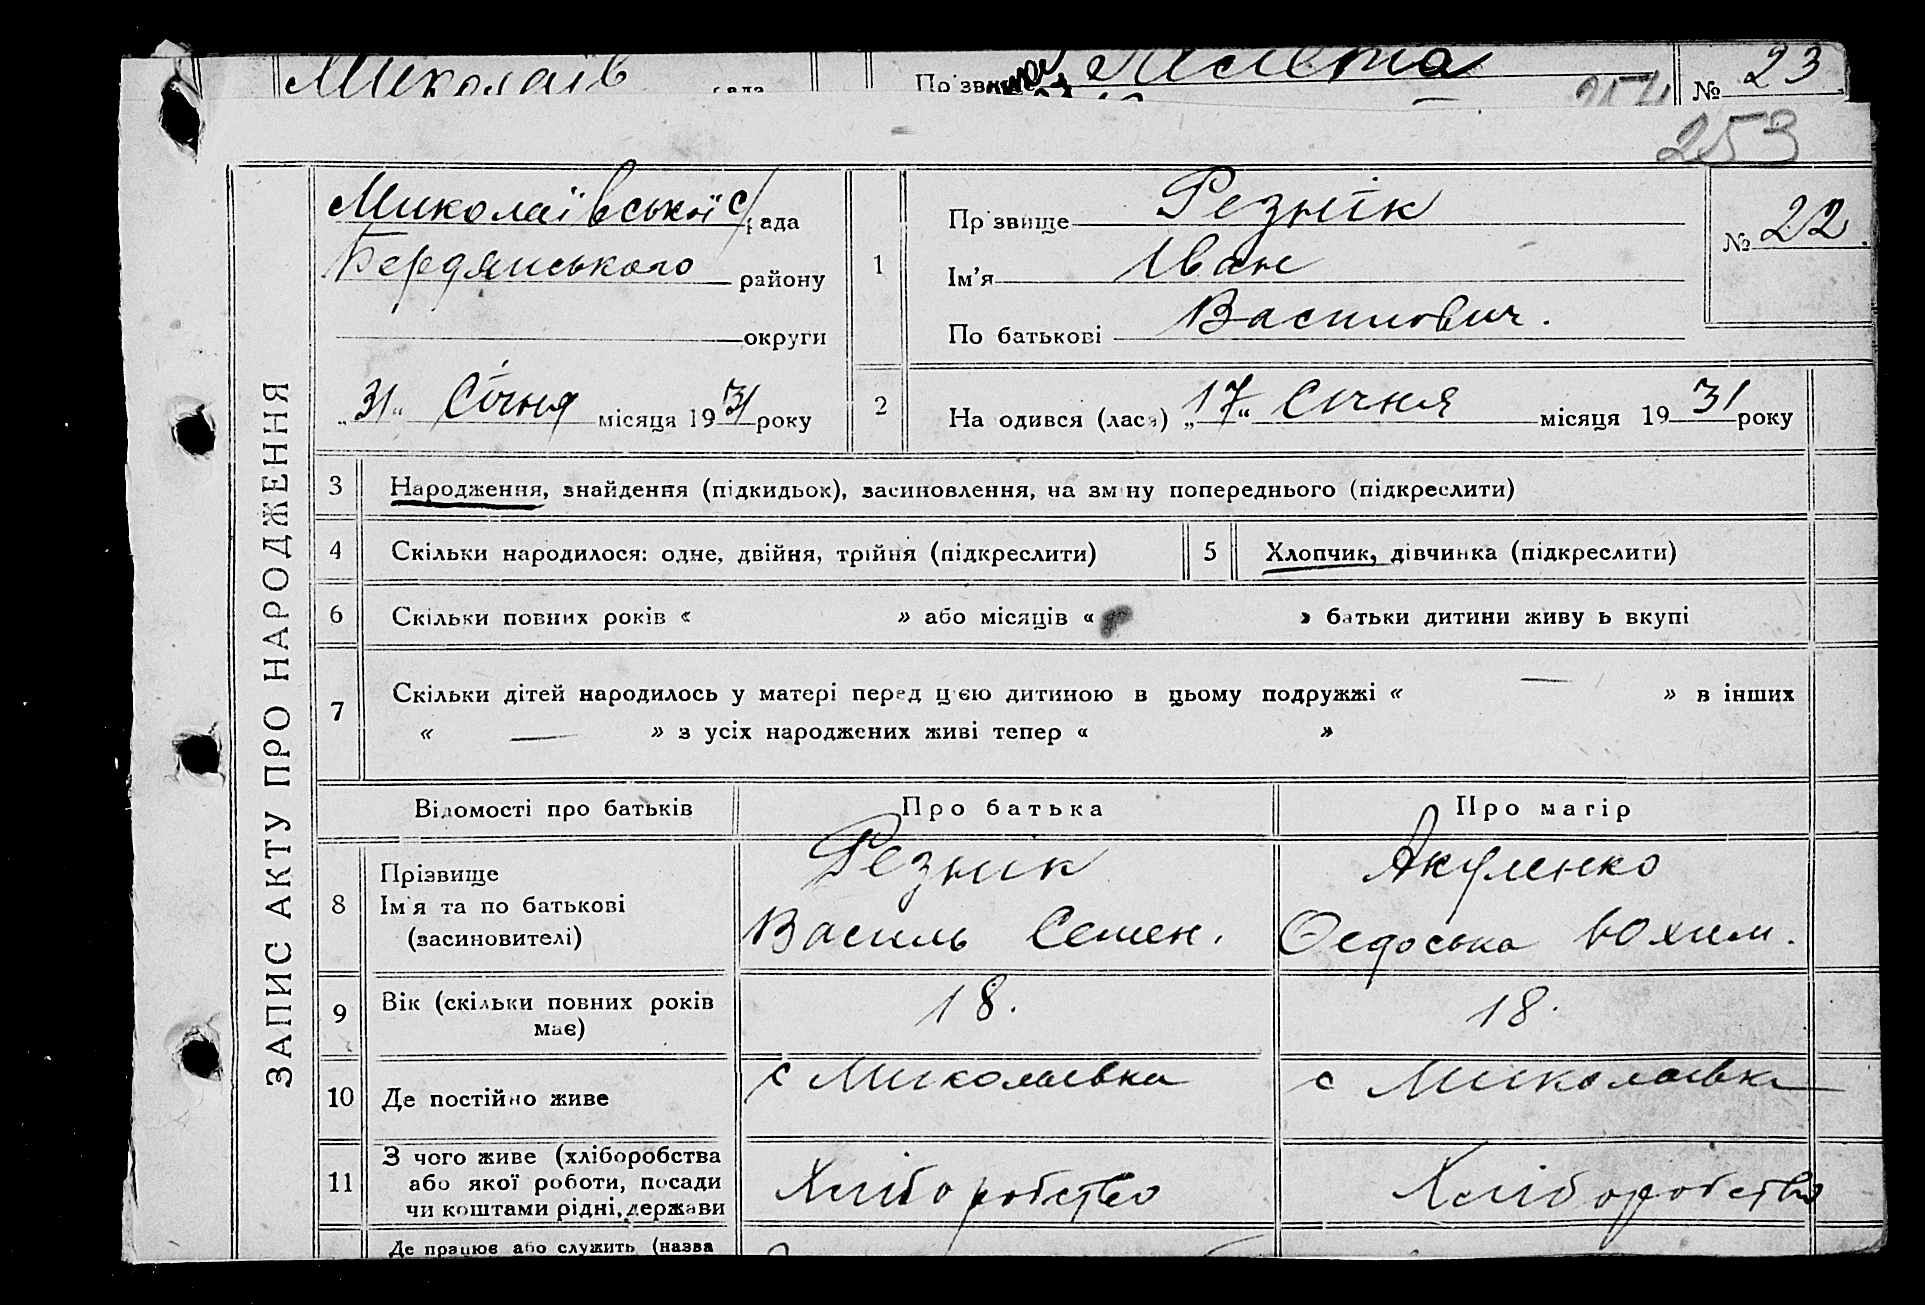 Миколаїв рада Прізвище № 23
254
253
ЗАПИС АКТУ ПРО НАРОДЖЕННЯ
Миколаївської с/рада
Бердянського району
округи
„31“ Січня місяця 1931 року
1
Прізвище Резнік
Ім'я Іван
По батькові Василович.
№ 22.
2 На одився (лася) „17“ Січня місяця 1931 року
3 Народження, знайдення (підкидьок), засиновлення, на зміну попереднього (підкреслити)
4 Скільки народилося: одне, двійня, трійня (підкреслити) 5 Хлопчик, дівчинка (підкреслити)
6 Скільки повних років « » або місяців « » батьки дитини живуть вкупі
7 Скільки дітей народилось у матері перед цією дитиною в цьому подружжі « — » в інших
« — » з усіх народжених живі тепер « »
Відомості про батьків Про батька Про матір
8 Прізвище Резник Акуленко
Ім'я та по батькові
(засиновителі) Василь Семен. Федоська Юхим.
9 Вік (скільки повних років має) 18. 18.
10 Де постійно живе с Миколаївка с Миколаївка
11 З чого живе (хліборобства
або якої роботи, посади
чи коштами рідні, держави Хліборобство Хліборобство
Де працює або служить (назва